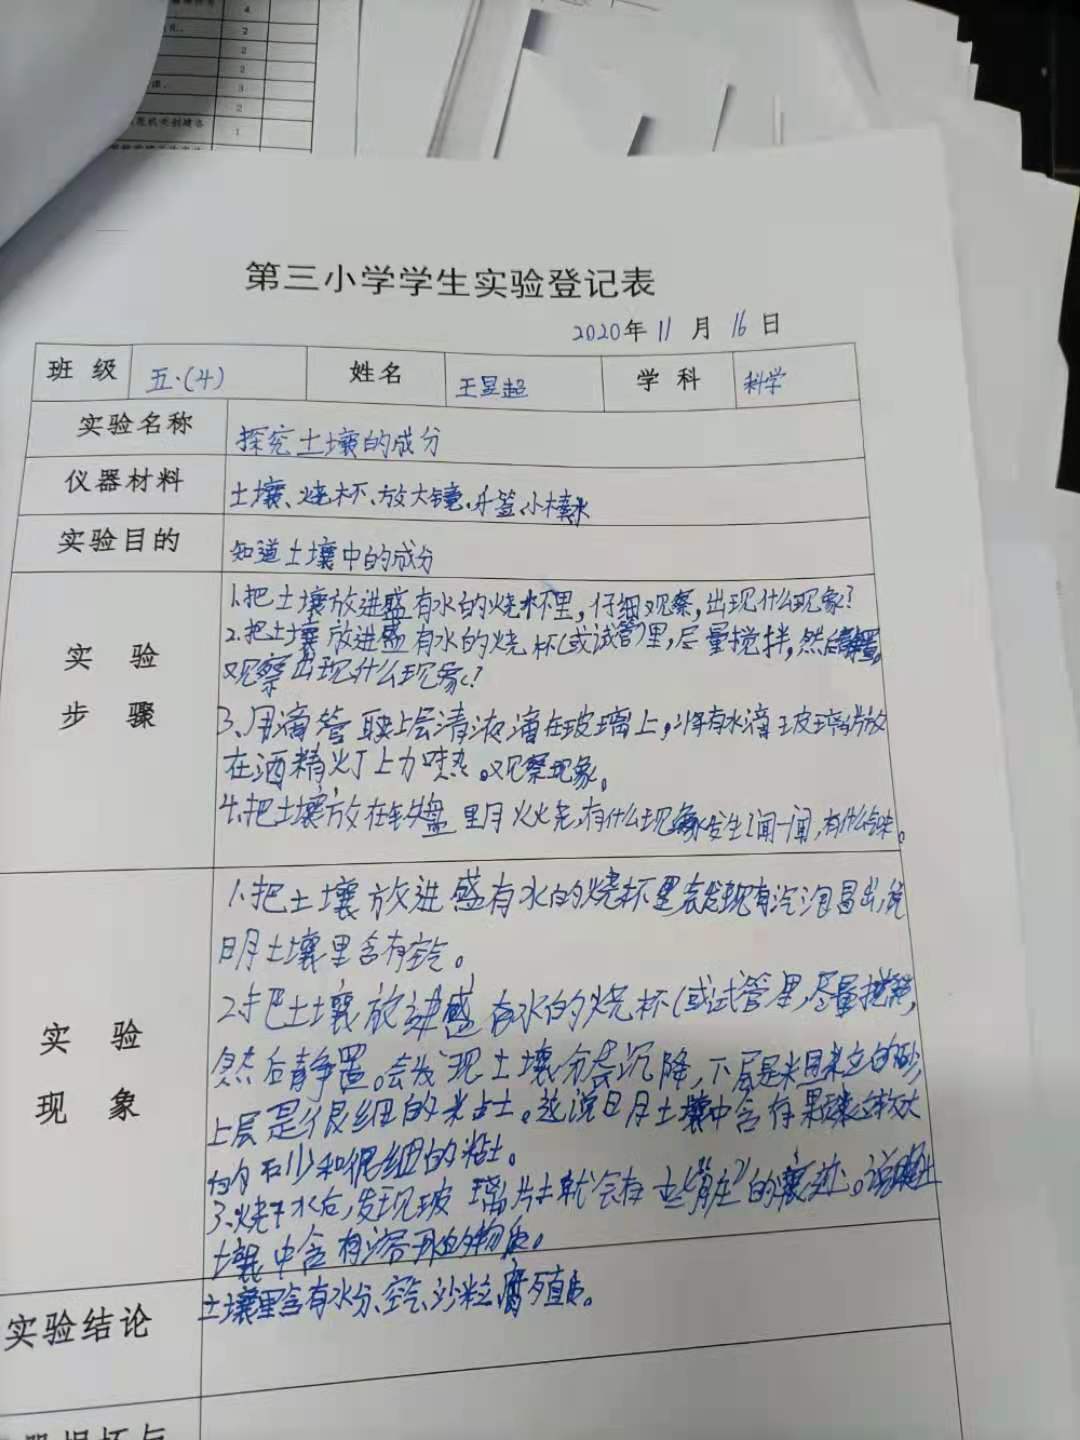 4
2
2
2
3
2
1
第三小学学生实验登记表
2020年 11 月 16 日
班 级 五.(4) 姓名 王昱超 学 科 科学
实验名称 探究土壤的成分
仪器材料 土壤、烧杯、放大镜、牙签、小棒、水
实验目的 知道土壤中的成分
实 验
步 骤
1.把土壤放进盛有水的烧杯里，仔细观察，出现什么现象？
2.把土壤放进盛有水的烧杯(或试管)里，尽量搅拌，然后静置，
观察出现什么现象？
3、用滴管取上层清液滴在玻璃上，将有水滴玻璃片放
在酒精灯上加热。观察现象。
4.把土壤放在铁盘里用火烧，有什么现象发生？闻一闻，有什么气味。
实 验
现 象
1.把土壤放进盛有水的烧杯里就发现有汽泡冒出，说
明土壤里含有空气。
2.把土壤放进盛有水的烧杯(或试管里，尽量搅拌，
然后静置。会发现土壤分层沉降，下层是米粒的砂，
上层是很细的粘土。这说明土壤中含有颗粒较大
的石沙和很细的粘土。
3、烧干水后，发现玻璃片上就会有 的痕迹。说明土
壤中含有溶于水的物质。
实验结论 土壤里含有水分、空气、沙粒、腐殖质。